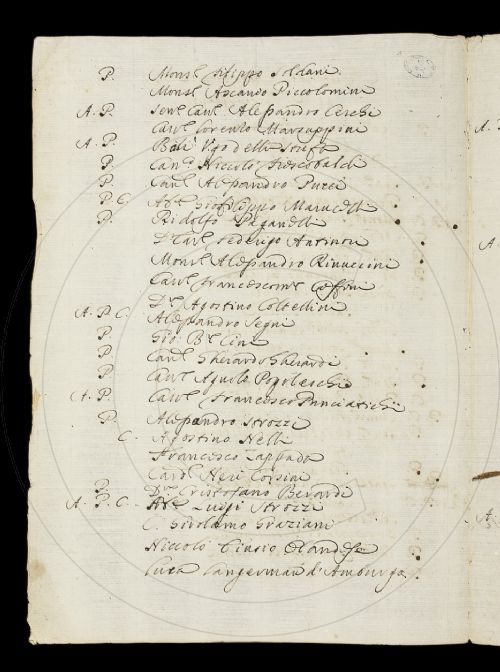 P. Monsr Filippo Soldani.
Monsr Ascanio Piccolomini
A. P. Senr Cavl Alessandro Cerchi
Cavl Lorenzo Marsuppini
A. P. Balì Ugo della Stufa
P. Canco Niccolò Frescobaldi
P. Cavl Alessandro Pucci
P C. Abte Giofilippo Marucelli
P. Ridolfo Paganelli
Dr Carl Federigo Antinori
Monsr Alessandro Rinuccini
Cavl Francescomra Ceffini
Dr Agostino Coltellini
A. P. C. Alessandro Segni
P. Gio: Bta Cini
P. Cavl Gherardo Gherardi
P. Cavl Agnolo Popoleschi
A. P. Cavl Francesco Panciatichi
P. Alessandro Strozzi
C. Agostino Nelli
Francesco Zappada
Cardl Neri Corsini
P. Dr Cristofano Berardi
A. P. C. Abte Luigi Strozzi
C. Girolamo Graziani
Niccolò Einsio Olandese
Luca Langerman d'Amburgo
A. P.
A
A.